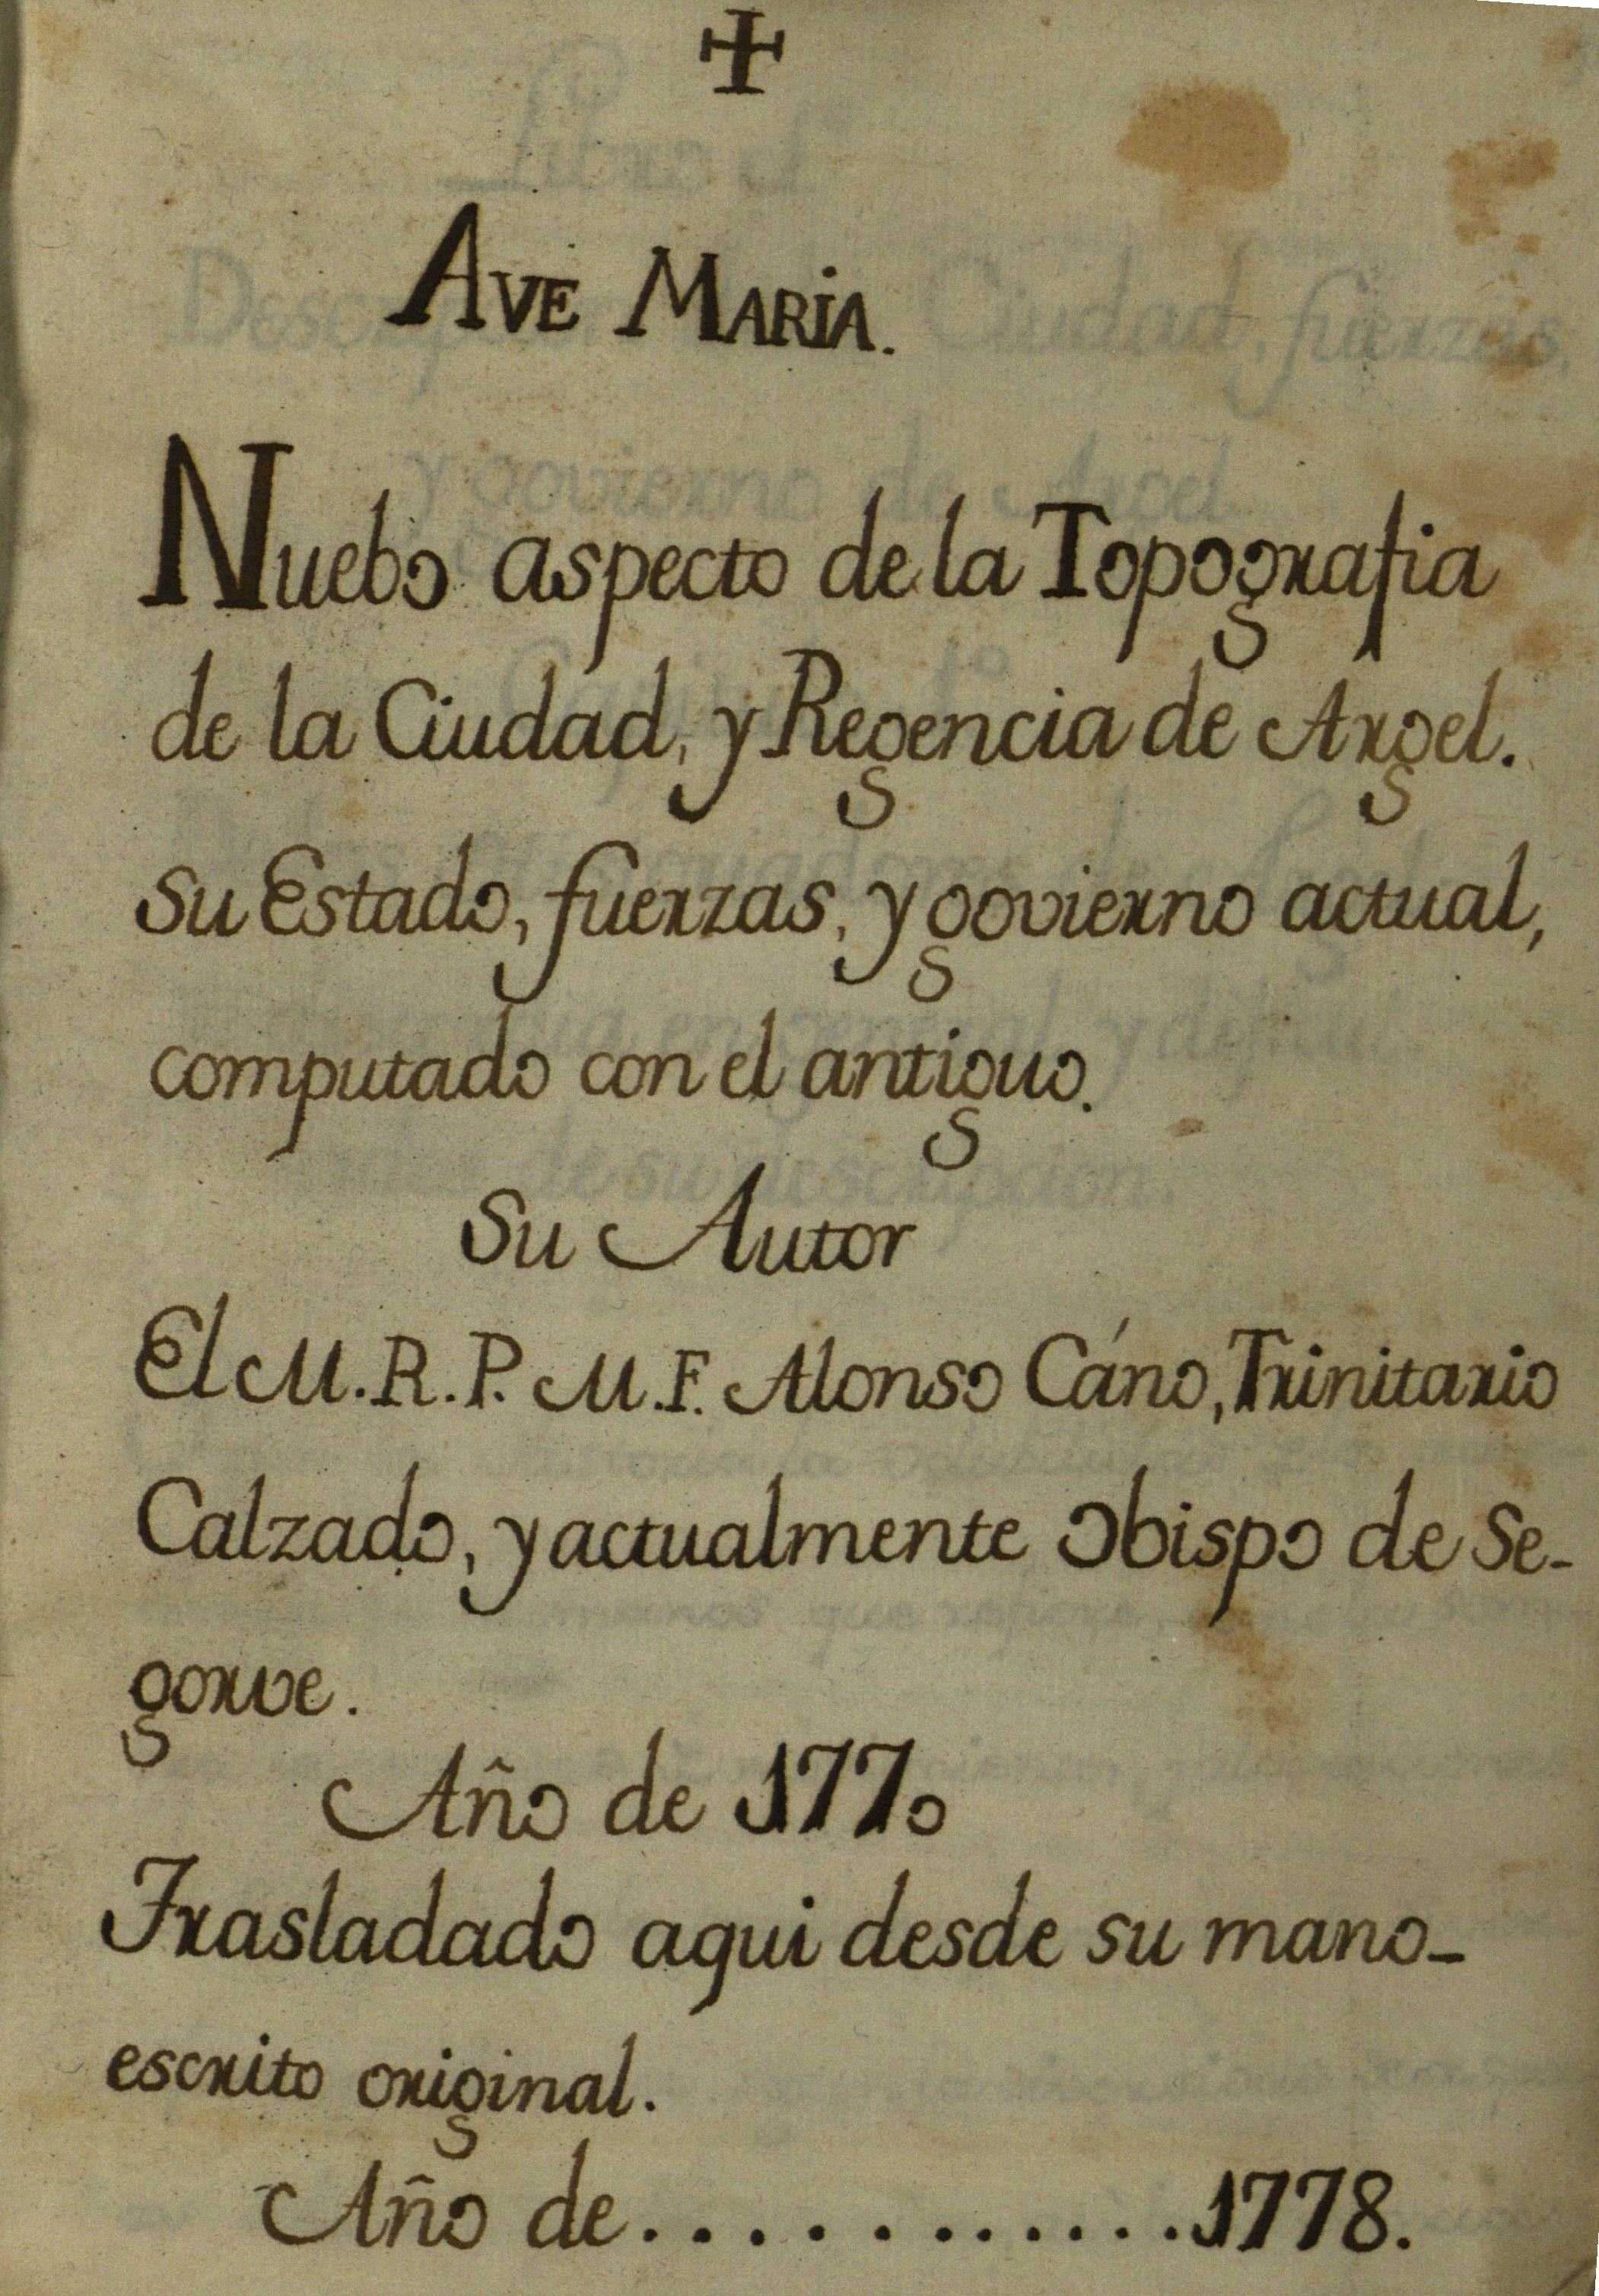 ✠
AVE MARIA.
Nuebo aspecto de la Topografia
de la Ciudad, y Regencia de Argel.
Su Estado, fuerzas, y govierno actual,
computado con el antiguo.
Su Autor
El M.R.P. M.F. Alonso Cáno, Trinitario
Calzado, y actualmente obispo de Se-
gorve.
Año de 1770
Trasladado aqui desde su mano-
escrito original.
Año de.............1778.